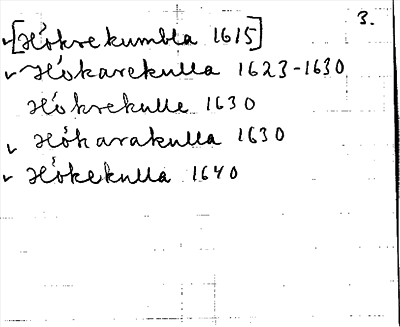 3.
[Hökrekumbla 1615]
Hökarekulla 1623-1630
Hökrekulle 1630
Hökarakulla 1630
Hökekulla 1640